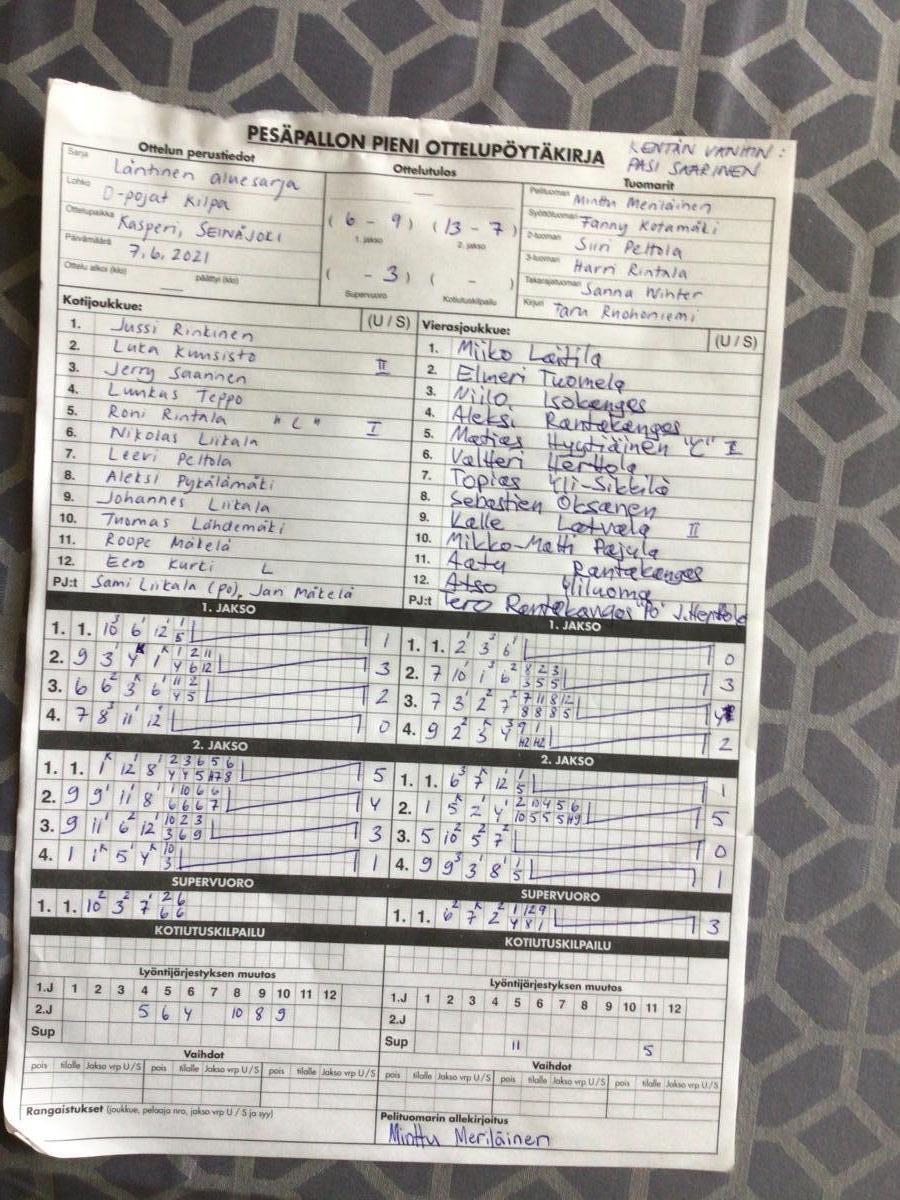 PESÄPALLON PIENI OTTELUPÖYTÄKIRJA
KENTÄN VANHIN :
PASI SAARINEN
Ottelun perustiedot
Ottelutulos
Tuomarit
Sarja Läntinen aluesarja
Lohko D-pojat Kilpa
Ottelupaikka Kasperi, SEINÄJOKI
Päivämäärä 7.6.2021
Ottelu alkoi (klo) päättyi (klo)
( 6 - 9 ) ( 13 - 7 )
1. jakso 2. jakso
( - 3 ) ( - )
Supervuoro Kotiutuskilpailu
Pelituomari Minttu Meriläinen
Syöttötuomari Fanny Kotamäki
2-tuomari Siiri Peltola
3-tuomari Harri Rintala
Takarajatuomari Sanna Winter
Kirjuri Taru Ruohoniemi
Kotijoukkue: (U / S)
1. Jussi Rinkinen
2. Luka Kunsisto
3. Jerry Saarinen II
4. Luukas Teppo
5. Roni Rintala "C" I
6. Nikolas Liikala
7. Leevi Peltola
8. Aleksi Pykälämäki
9. Johannes Liikala
10. Tuomas Lähdemäki
11. Roope Mäkelä
12. Eero Kurti L
PJ:t Sami Liikala (PJ), Jan Mäkelä
Vierasjoukkue: (U / S)
1. Miiko Laitila
2. Elmeri Tuomela
3. Niilo Isokangas
4. Aleksi Rantakangas
5. Matias Hyytiäinen "C" I
6. Valtteri Herttola
7. Topias Yli-Sikkilä
8. Sebastien Oksanen
9. Kalle Latvala II
10. Mikko-Matti Pajula
11. Aatu Rantakangas
12. Atso Yliluoma
PJ:t Tero Rantakangas "PJ" J.Herttola
1. JAKSO
1. 1. 10 6 12 1
2. 9 3 3
3. 6 6 3 6 2
4. 7 8 11 12 0
1. JAKSO
1. 1. 2 3 6 0
2. 7 10 1 6 3
3. 7 3 2 7 4
4. 9 2 3 4 2
2. JAKSO
1. 1. 1 12 8 5
2. 9 9 11 8 4
3. 9 11 6 12 3
4. 1 1 5 4 1
2. JAKSO
1. 1. 6 7 12 1
2. 1 5 2 4 5
3. 5 10 5 7 0
4. 9 9 3 8 1
SUPERVUORO
1. 1. 10 3 7
SUPERVUORO
1. 1. 6 7 2 3
KOTIUTUSKILPAILU
KOTIUTUSKILPAILU
Lyöntijärjestyksen muutos
1.J 1 2 3 4 5 6 7 8 9 10 11 12
2.J 5 6 4 10 8 9
Sup
Lyöntijärjestyksen muutos
1.J 1 2 3 4 5 6 7 8 9 10 11 12
2.J
Sup 11 5
Vaihdot
pois tilalle Jakso vrp U/S pois tilalle Jakso vrp U/S pois tilalle Jakso vrp U/S
Vaihdot
pois tilalle Jakso vrp U/S pois tilalle Jakso vrp U/S pois tilalle Jakso vrp U/S
Rangaistukset (joukkue, pelaaja nro, jakso vrp U / S ja syy)
Pelituomarin allekirjoitus
Minttu Meriläinen